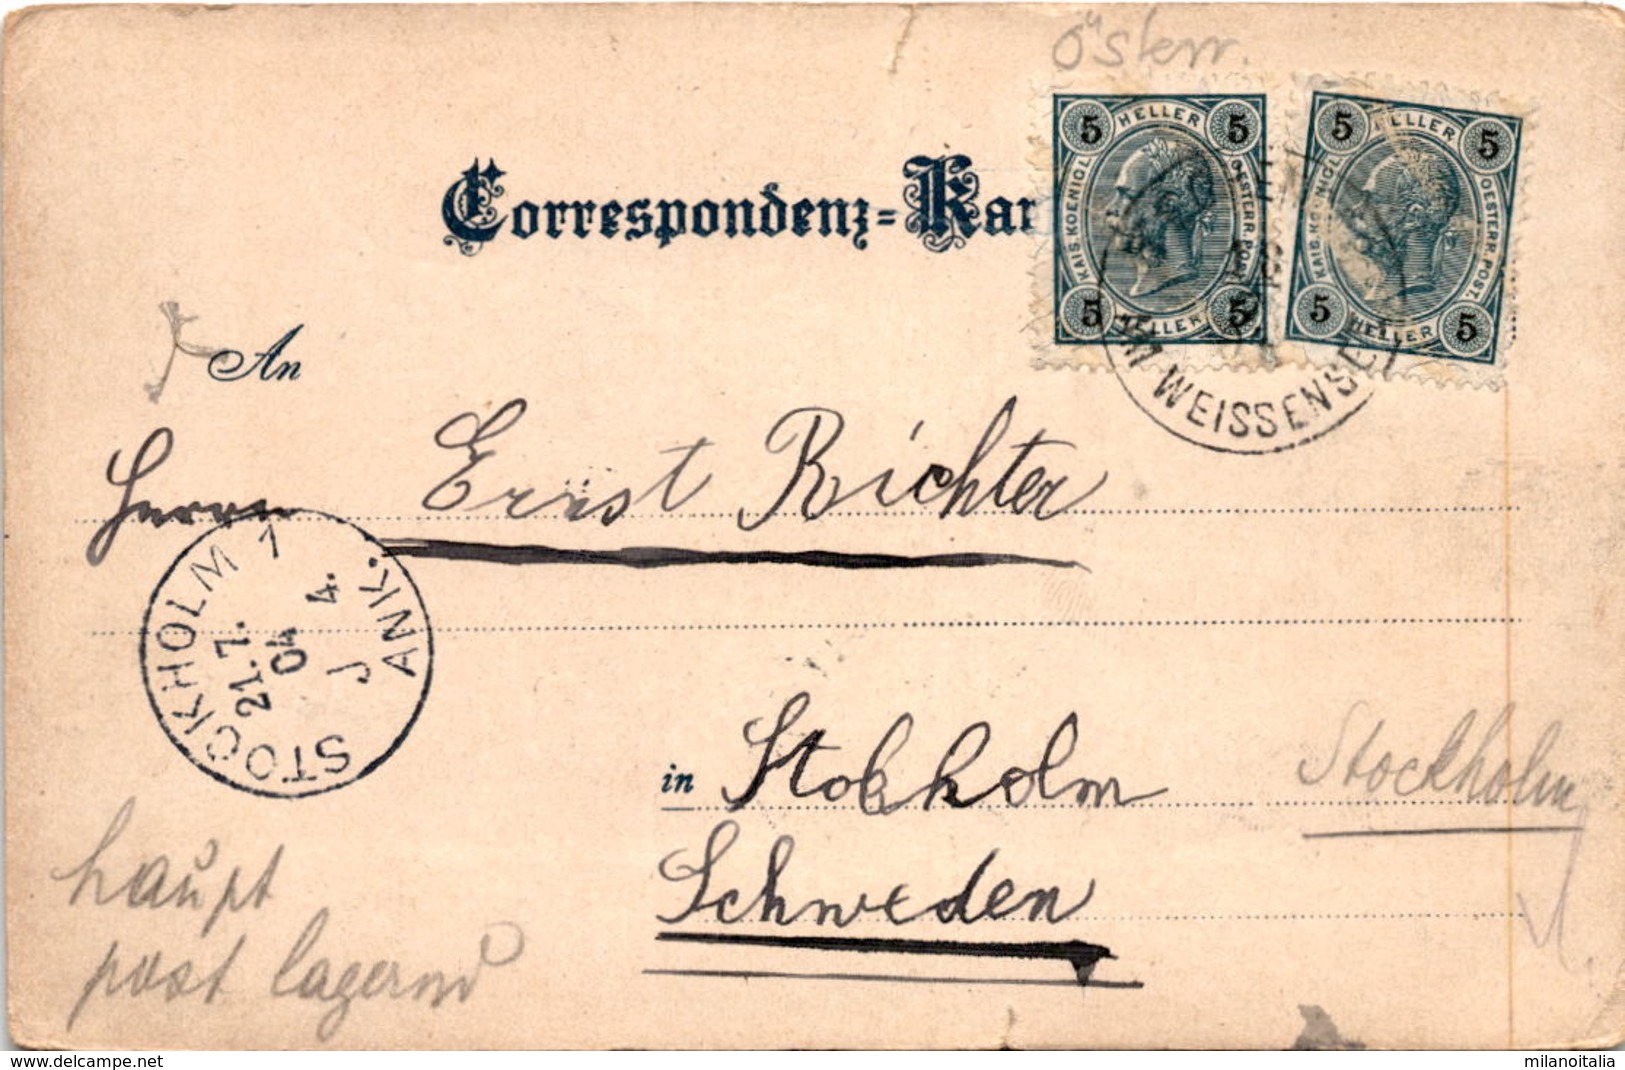 Österr.
5 HELLER 5
KAIS. KOENIGL. OESTERR. POST.
5 HELLER 5
5 HELLER 5
KAIS. KOENIGL. OESTERR. POST.
5 HELLER 5
Correspondenz=Kar
AM WEISSENSEE
An
Herrn Ernst Richter
STOCKHOLM 1
21.7.
04
4.
J
ANK.
in Stokholm Stockholm
Schweden
haupt
post lagernd
delcampe.net
milanoitalia